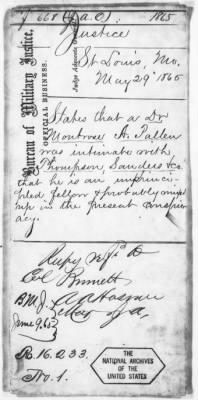 J 668 (J.a.O.) 1865
Justice
Bureau of Military Justice,
OFFICIAL BUSINESS.
Judge Advocate
St Louis, Mo.
May 29" 1865
States that a Dr
Montrose A. Pallen
was intimate with
Thompson, Sanders &c.
that he is an unprinci-
pled fellow & probably mixed
up in the present conspir-
acy.
Col Burnett
B.M.J.
June 9. 65
R. 16. 233.
No. 1.
THE
NATIONAL ARCHIVES
OF THE
UNITED STATES